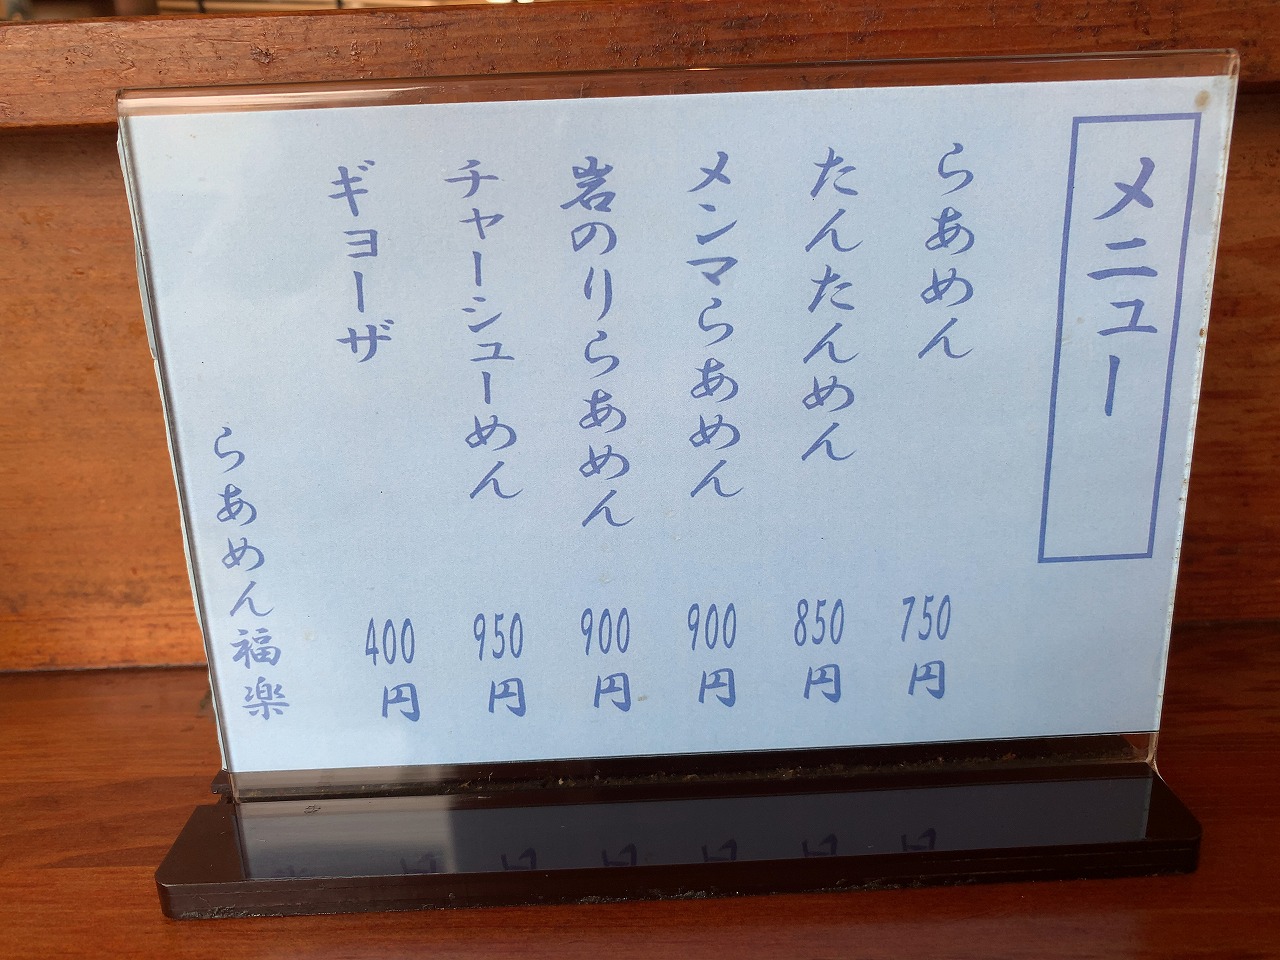 メニュー
らあめん 750円
たんたんめん 850円
メンマらあめん 900円
岩のりらあめん 900円
チャーシューめん 950円
ギョーザ 400円
らあめん福楽